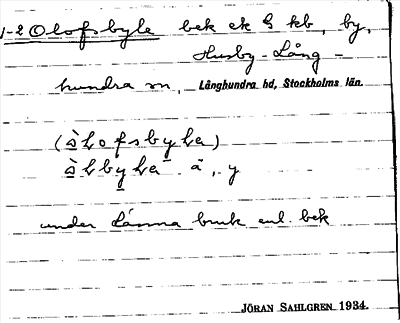 1-2 Olofsbyle bek ek & kb, by,
Husby-Lång-
hundra sn, Långhundra hd, Stockholms län.
(ὰLofsbyLa)
ὰLbyLa ā, y
under Lánna bruk enl. bek
JÖRAN SAHLGREN 1934.